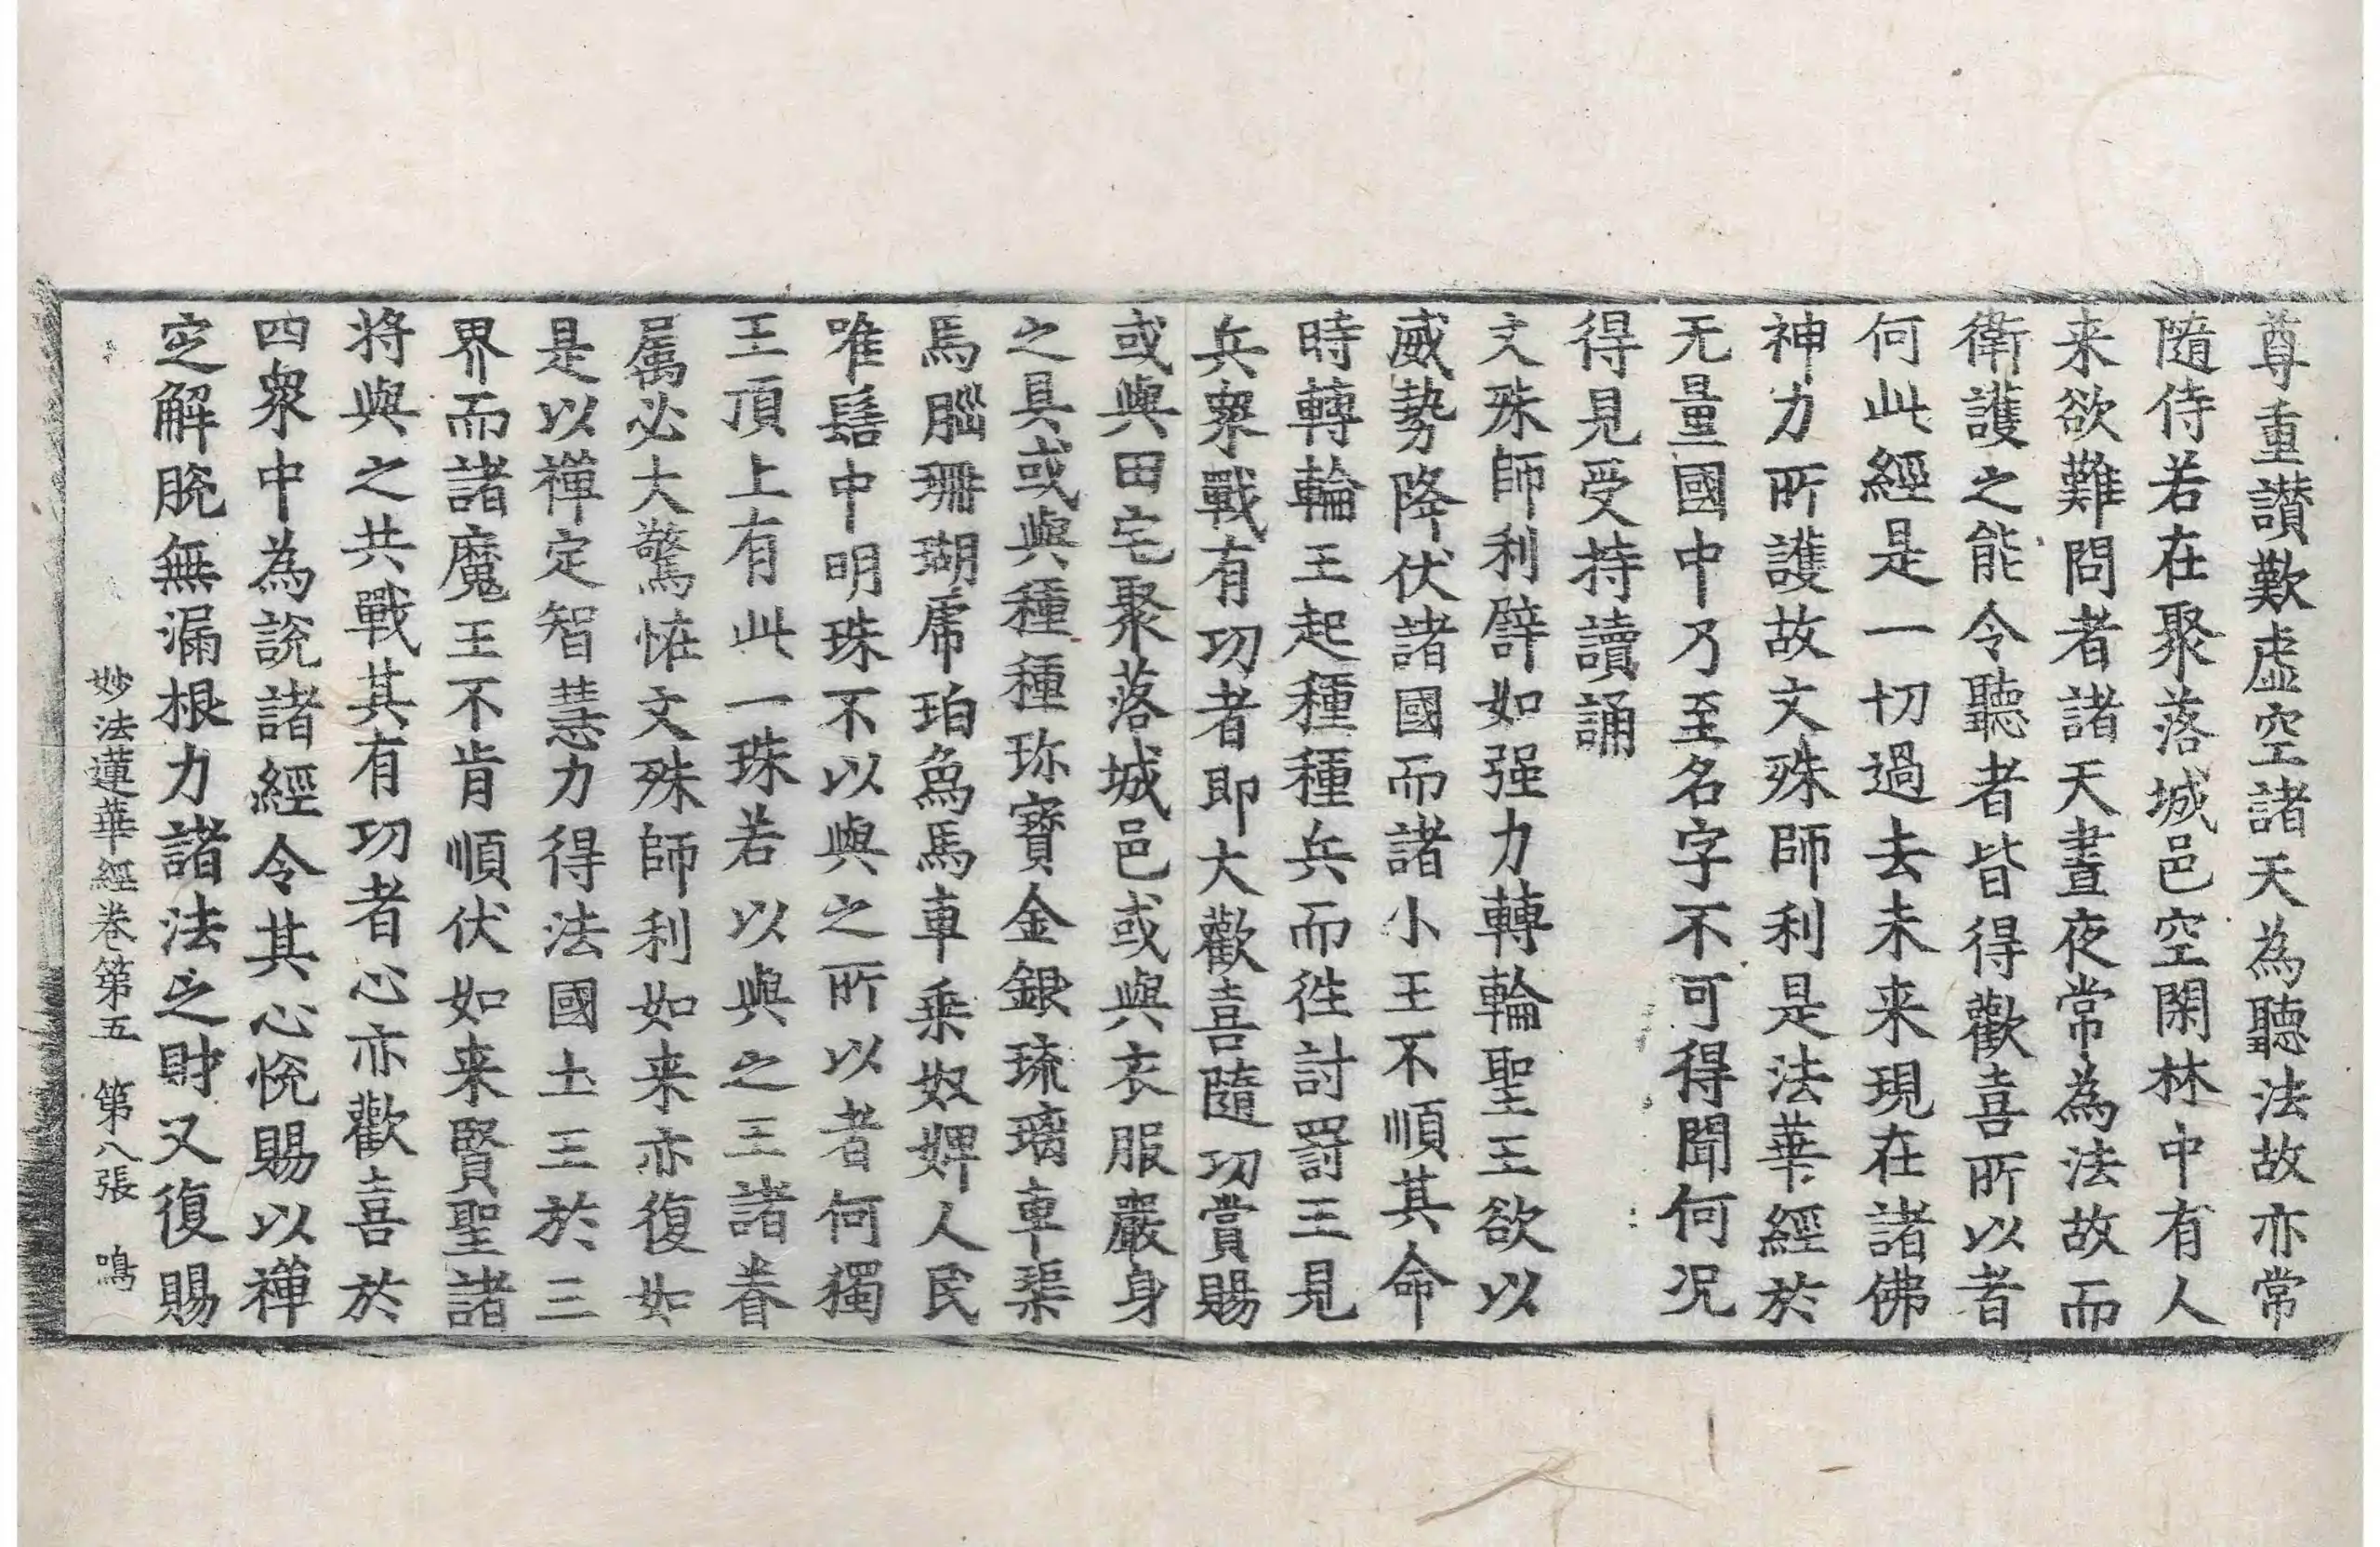 尊重讃歎虛空諸天為聽法故亦常
隨侍若在聚落城邑空閑林中有人
来欲難問者諸天晝夜常為法故而
衛護之能令聽者皆得歡喜所以者
何此經是一切過去未来現在諸佛
神力所護故文殊師利是法華經於
无量國中乃至名字不可得聞何况
得見受持讀誦
文殊師利譬如强力轉輪聖王欲以
威勢降伏諸國而諸小王不順其命
時轉輪王起種種兵而往討罰王見
兵衆戰有功者即大歡喜隨功賞賜
或與田宅聚落城邑或與衣服嚴身
之具或與種種珎寶金銀琉璃車𤦲
馬腦珊瑚虎珀象馬車乗奴婢人民
唯髻中明珠不以與之所以者何獨
王頂上有此一珠若以與之王諸眷
屬必大驚恠文殊師利如来亦復如
是以禪定智慧力得法國土王於三
界而諸魔王不肯順伏如来賢聖諸
將與之共戰其有功者心亦歡喜於
四衆中為說諸經令其心悅賜以禪
定解脫無漏根力諸法之財又復賜
妙法蓮華經卷第五　第八張　鳴